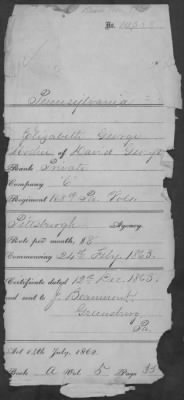 No.
Pennsylvania
Elizabeth George
Mother of David George
Rank Private
Company "C"
Regiment 168th Pa. Vols.
Pittsburgh Agency
Rate per month, $8
Commencing 24th Feby. 1863.
Certificate dated 12th Dec. 1863.
and sent to J. Beaumont,
Greensburg
Pa.
Act 14th July, 1862.
Book A Vol. 5 Page 35